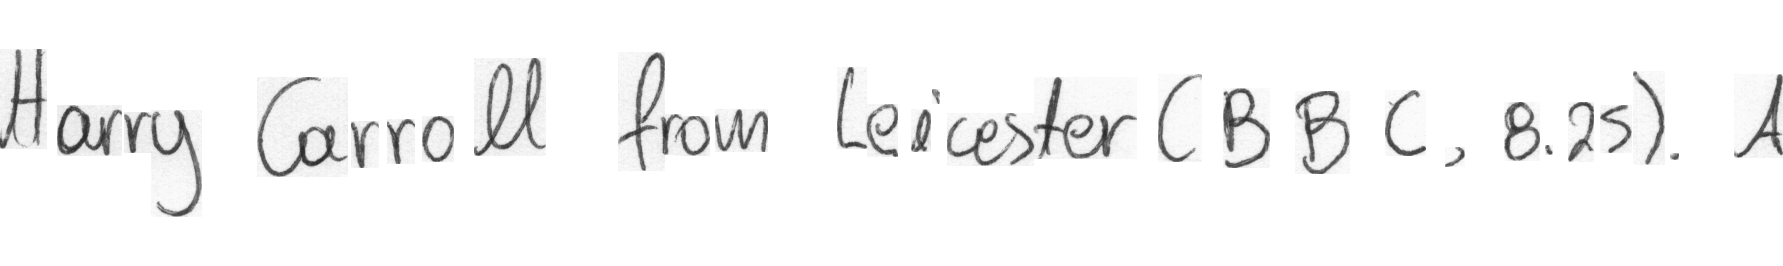 Harry Carroll from Leicester (BBC, 8.25). A